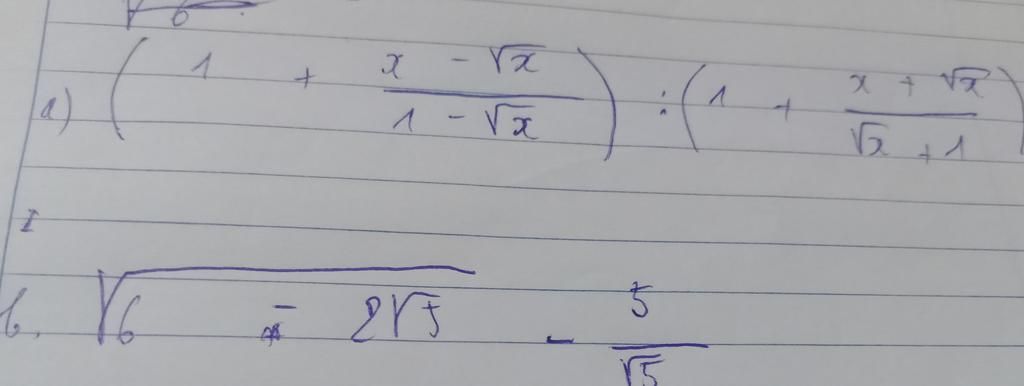 √6.
a) (1 + (x - √x)/(1 - √x)) : (1 + (x + √x)/(√x + 1))
I
b. √(6 - 2√5) - 5/√5